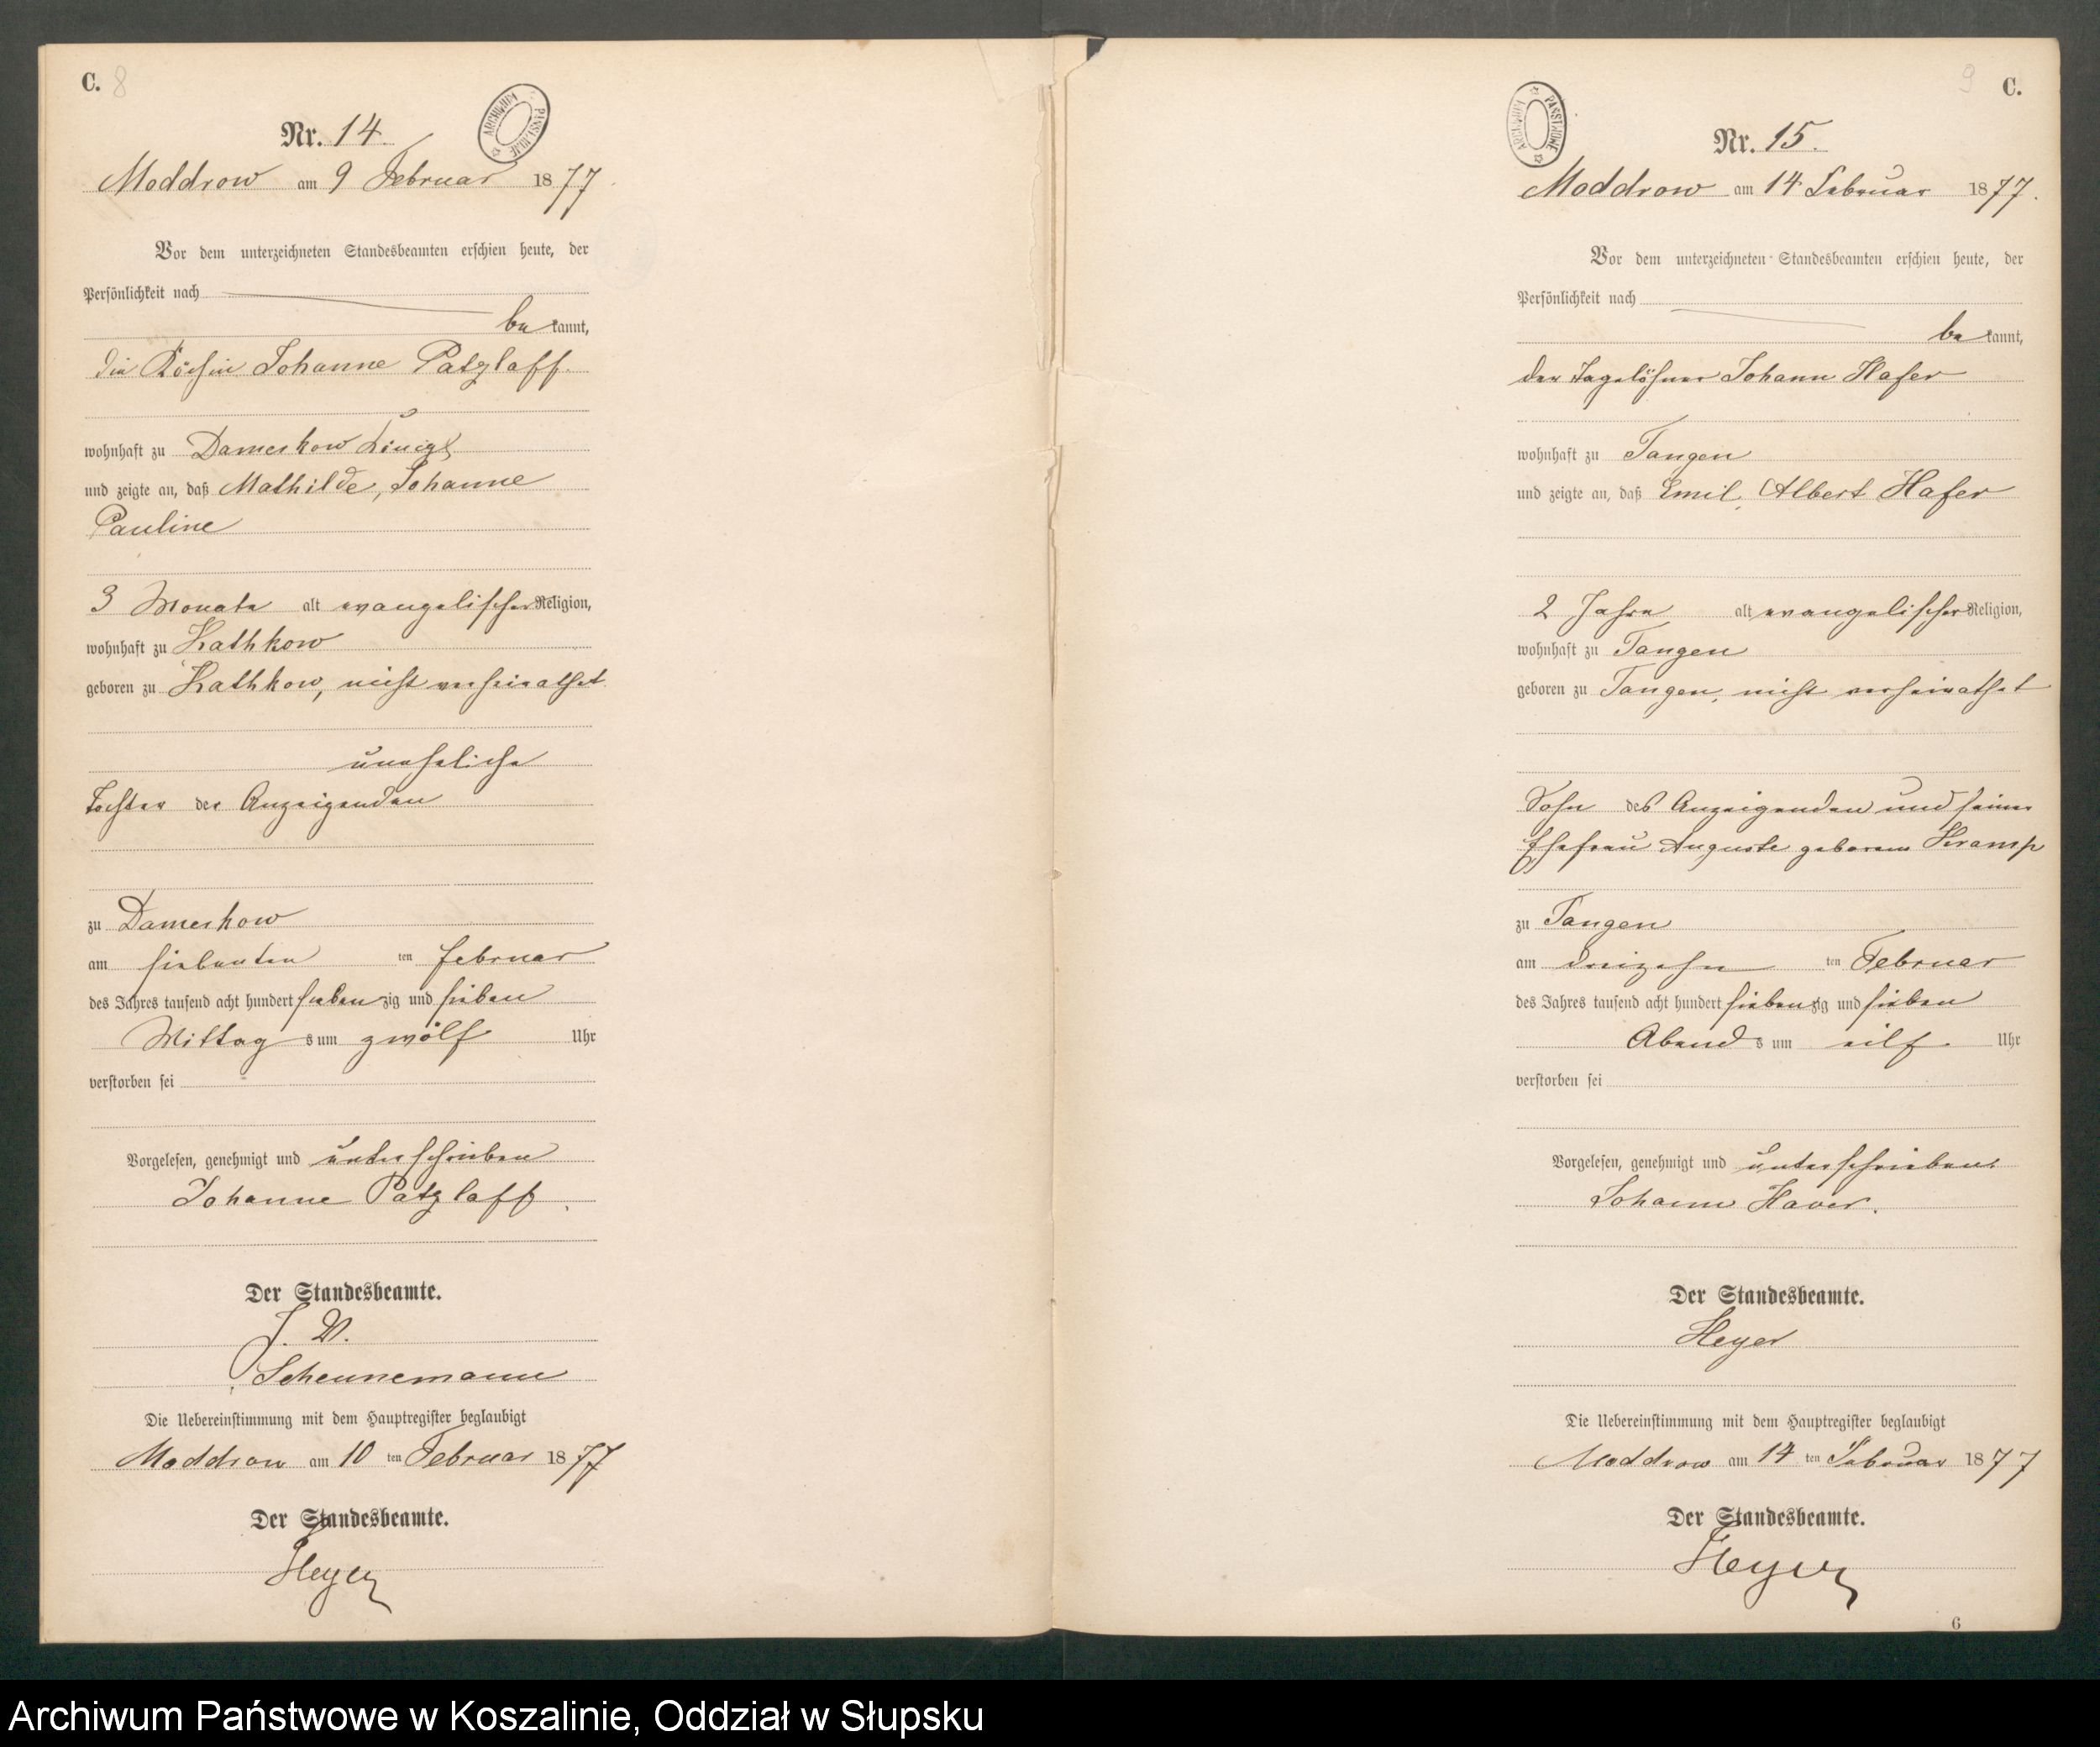 C. 8
Nr. 14.
ARCHIWUM PAŃSTWOWE
Moddrow am 9 Februar 1877
Vor dem unterzeichneten Standesbeamten erschien heute, der
Persönlichkeit nach
be kannt,
die Köchin Johanne Patzlaff.
wohnhaft zu Dameskow
und zeigte an, daß Mathilde, Johanne
Pauline
3 Monate alt evangelischer Religion,
wohnhaft zu Kathkow
geboren zu Kathkow, nicht verheirathet
uneheliche
Tochter der Anzeigenden
zu Dameskow
am siebenten ten Februar
des Jahres tausend acht hundert sieben zig und sieben
Mittag s um zwölf Uhr
verstorben sei
Vorgelesen, genehmigt und unterschrieben
Johanne Patzlaff.
Der Standesbeamte.
J. V.
Scheunemann
Die Uebereinstimmung mit dem Hauptregister beglaubigt
Moddrow am 10 ten Februar 1877
Der Standesbeamte.
Heyer
9 C.
Nr. 15.
ARCHIWUM PAŃSTWOWE
Moddrow am 14 Februar 1877.
Vor dem unterzeichneten Standesbeamten erschien heute, der
Persönlichkeit nach
be kannt,
der Tagelöhner Johann Hafer
wohnhaft zu Tangen
und zeigte an, daß Emil, Albert Hafer
2 Jahre alt evangelischer Religion,
wohnhaft zu Tangen
geboren zu Tangen, nicht verheirathet
Sohn des Anzeigenden und seiner
Ehefrau Auguste geborene Kramp
zu Tangen
am dreizehn ten Februar
des Jahres tausend acht hundert sieben zig und sieben
Abend s um eilf Uhr
verstorben sei
Vorgelesen, genehmigt und unterschrieben
Johann Haver.
Der Standesbeamte.
Heyer
Die Uebereinstimmung mit dem Hauptregister beglaubigt
Moddrow am 14 ten Februar 1877
Der Standesbeamte.
Heyer
6
Archiwum Państwowe w Koszalinie, Oddział w Słupsku